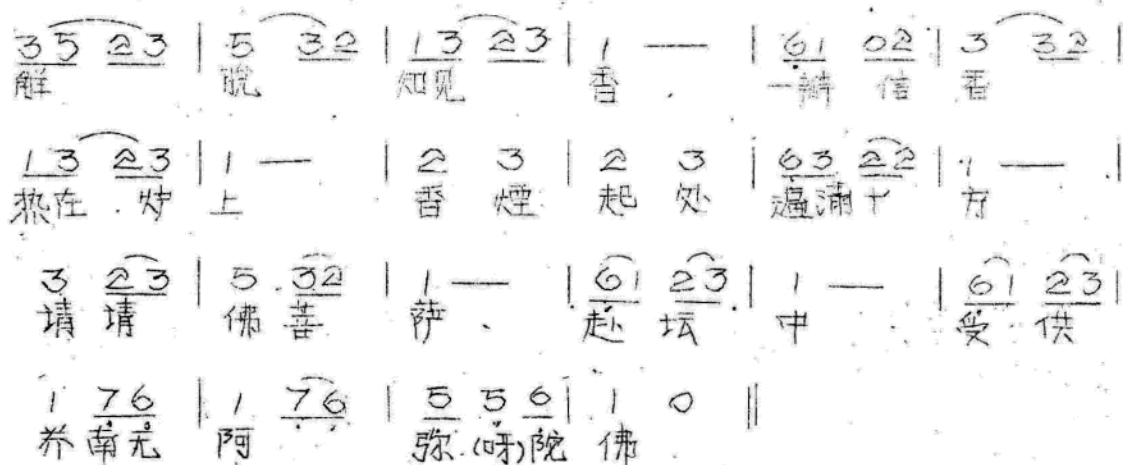 3 5 2 3 | 5 3 2 | 1 3 2 3 | 1 — | 6 1 0 2 | 3 3 2 |
解 脱 知见 香 一瓣 信 香
1 3 2 3 | 1 — | 2 3 | 2 3 | 6 3 2 2 | 1 — |
热在 炉 上 香 煙 起 处 遍满十 方
3 2 3 | 5 3 2 | 1 — | 6 1 2 3 | 1 — | 6 1 2 3 |
请 请 佛 菩 萨 赴 坛 中 受 供
1 7 6 | 1 7 6 | 5 5 6 | 1 0 ||
养 南无 阿 弥 (呀) 陀 佛